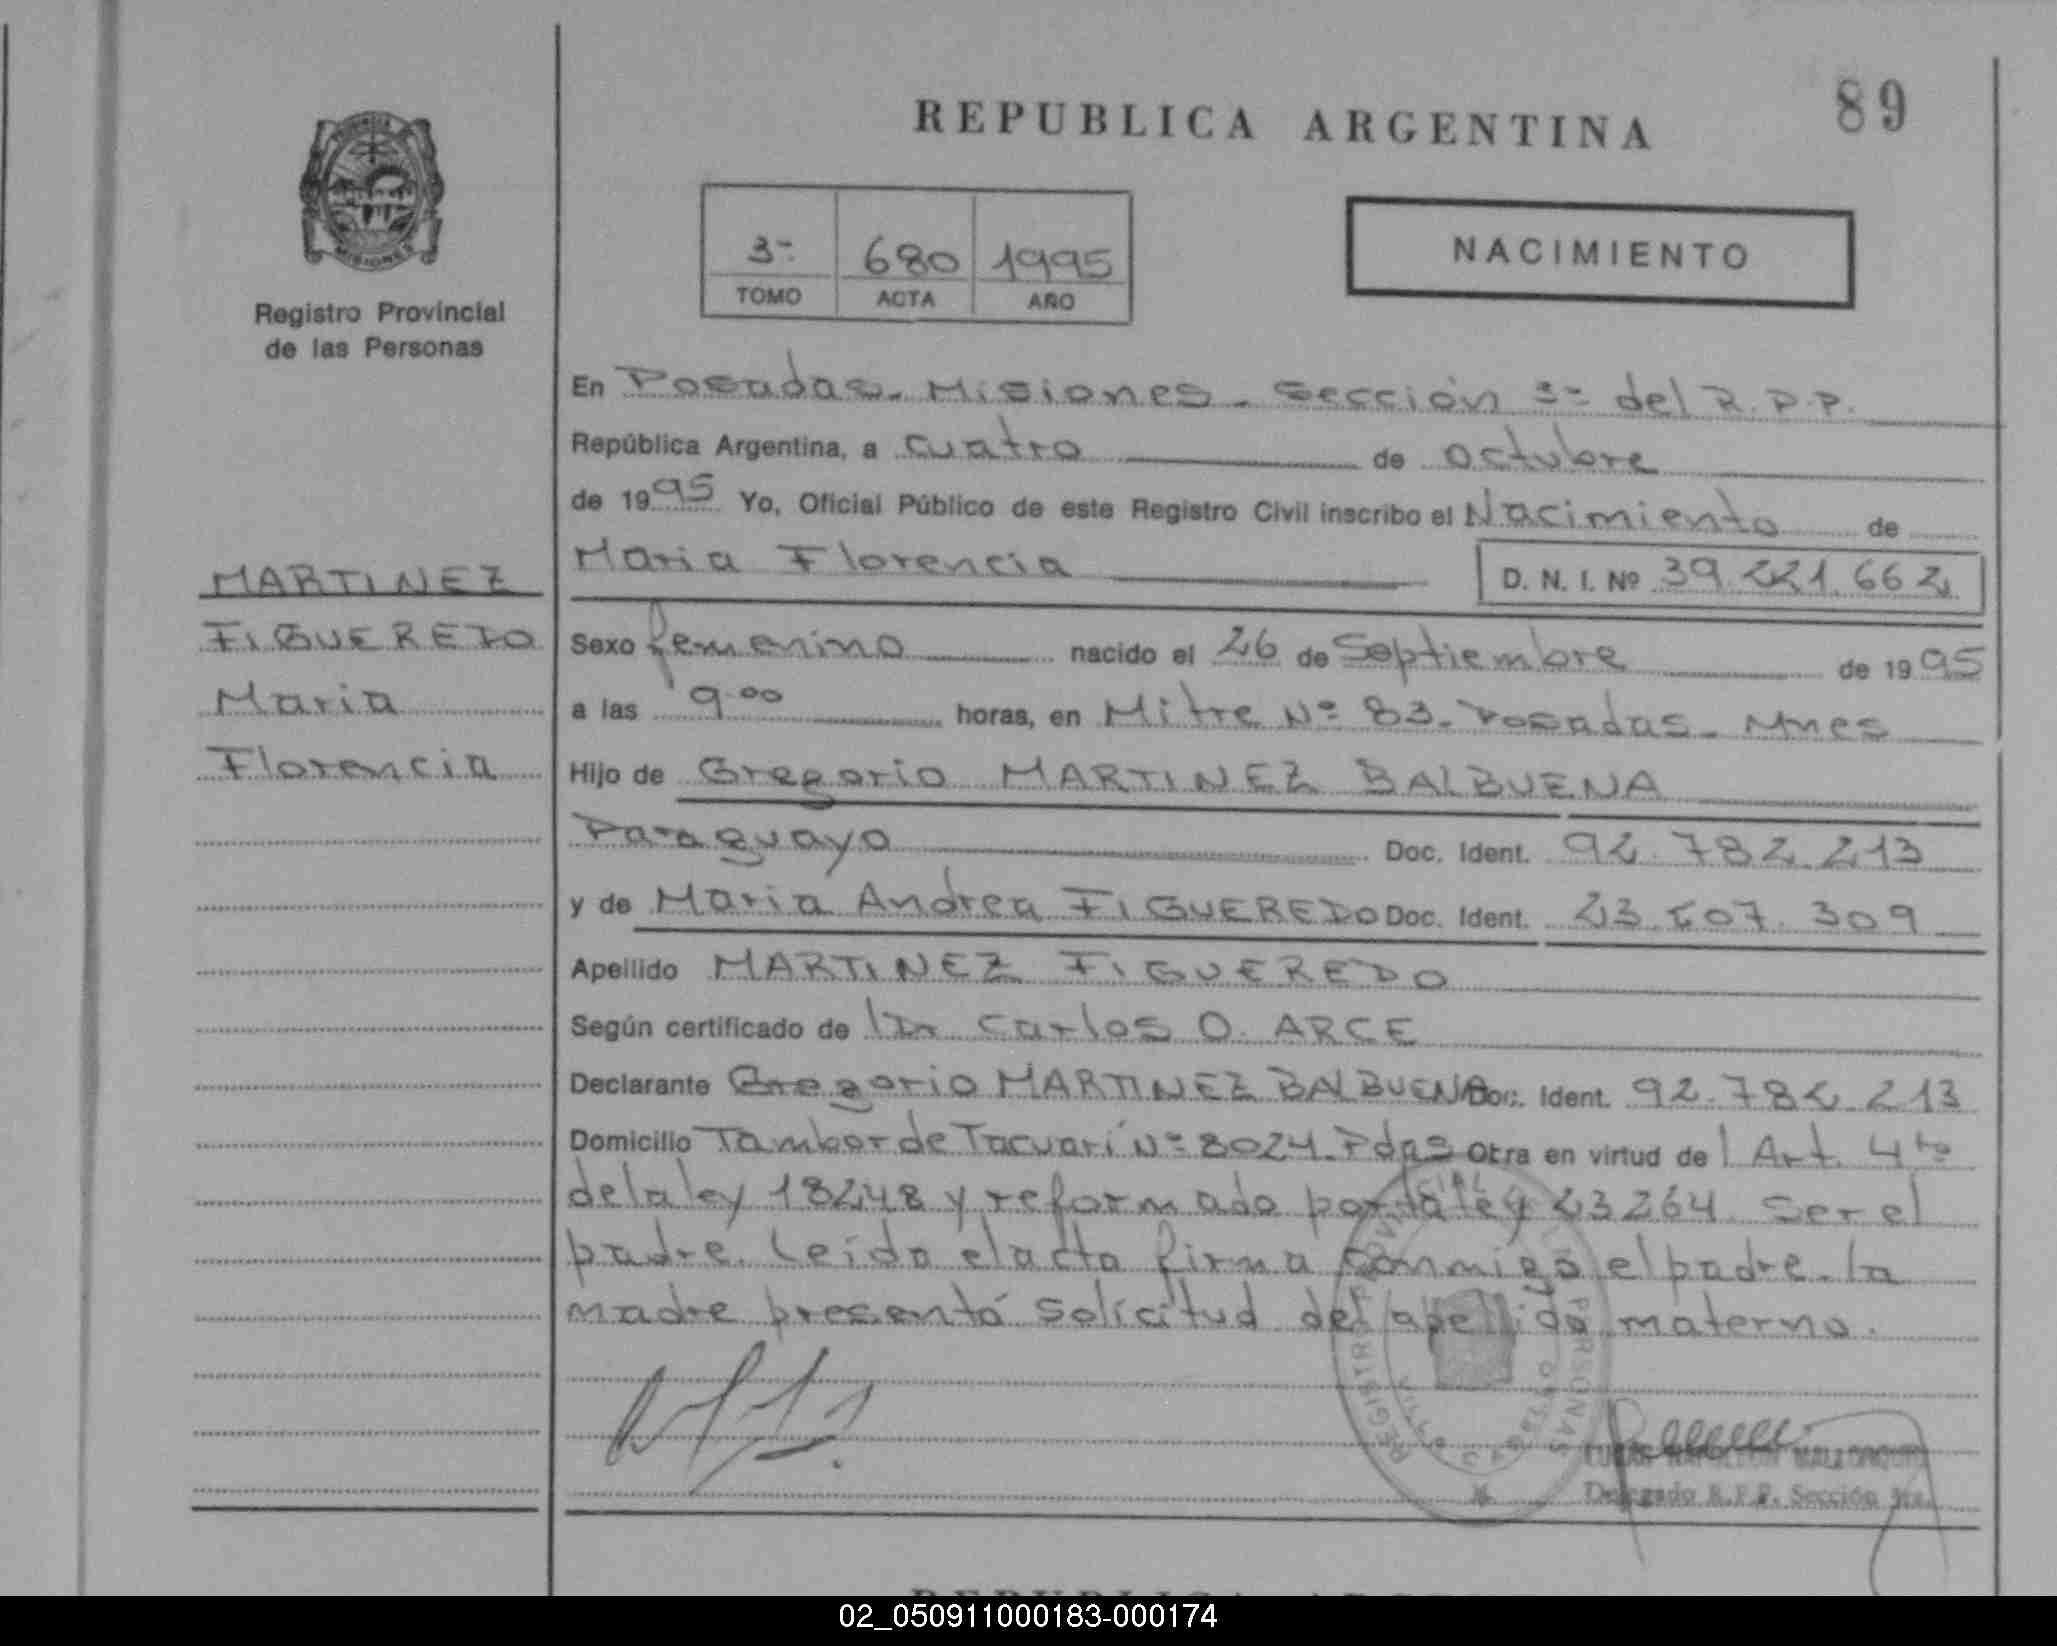 REPUBLICA ARGENTINA
89
PROVINCIA DE
MISIONES
Registro Provincial
de las Personas
3ª 680 1995
TOMO ACTA AÑO
NACIMIENTO
MARTINEZ
FIGUEREDO
Maria
Florencia
En Posadas. Misiones. Sección 3ª del R.P.P.
República Argentina, a cuatro de octubre
de 1995 Yo, Oficial Público de este Registro Civil inscribo el Nacimiento de
Maria Florencia D. N. I. Nº 39.221.662
Sexo femenino nacido el 26 de Septiembre de 1995
a las 9.00 horas, en Mitre Nº 83. Posadas. Mnes
Hijo de Gregorio MARTINEZ BALBUENA
Paraguayo Doc. Ident. 92.782.213
y de Maria Andrea FIGUEREDO Doc. Ident. 23.207.309
Apellido MARTINEZ FIGUEREDO
Según certificado de l Dr. Carlos O. ARCE
Declarante Gregorio MARTINEZ BALBUENA Doc. Ident. 92.782.213
Domicilio Tambor de Tacuarí Nº 8024. Pdas Obra en virtud de l Art. 4to
de la ley 18248 y reformado por la ley 23264. Ser el
padre. Leída el acta firma conmigo el padre. la
madre presentó solicitud del apellido materno.
Delegado R.P.P. Sección 3ra.
02_050911000183-000174